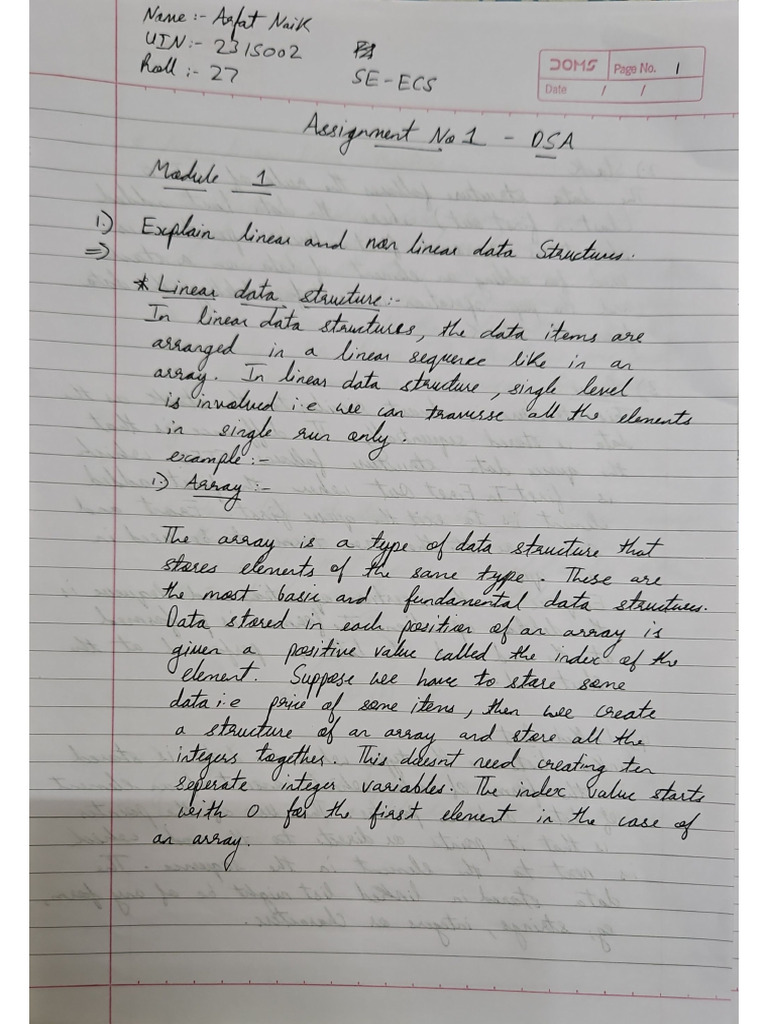 Name :- Arfat Naik
UIN :- 231S002
Roll :- 27
SE-ECS
DOMS
Page No. 1
Date / /
Assignment No 1 - DSA
Module 1
1.) Explain linear and non linear data Structures.
=>
* Linear data structure :-
In linear data structures, the data items are
arranged in a linear sequence like in an
array. In linear data structure, single level
is involved i.e we can traverse all the elements
in single run only.
example :-
i.) Array :-
The array is a type of data structure that
stores elements of the same type. These are
the most basic and fundamental data structures.
Data stored in each position of an array is
given a positive value called the index of the
element. Suppose we have to store some
data i.e price of some items, then we create
a structure of an array and store all the
integers together. This doesnt need creating ten
seperate integer variables. The index value starts
with 0 for the first element in the case of
an array.